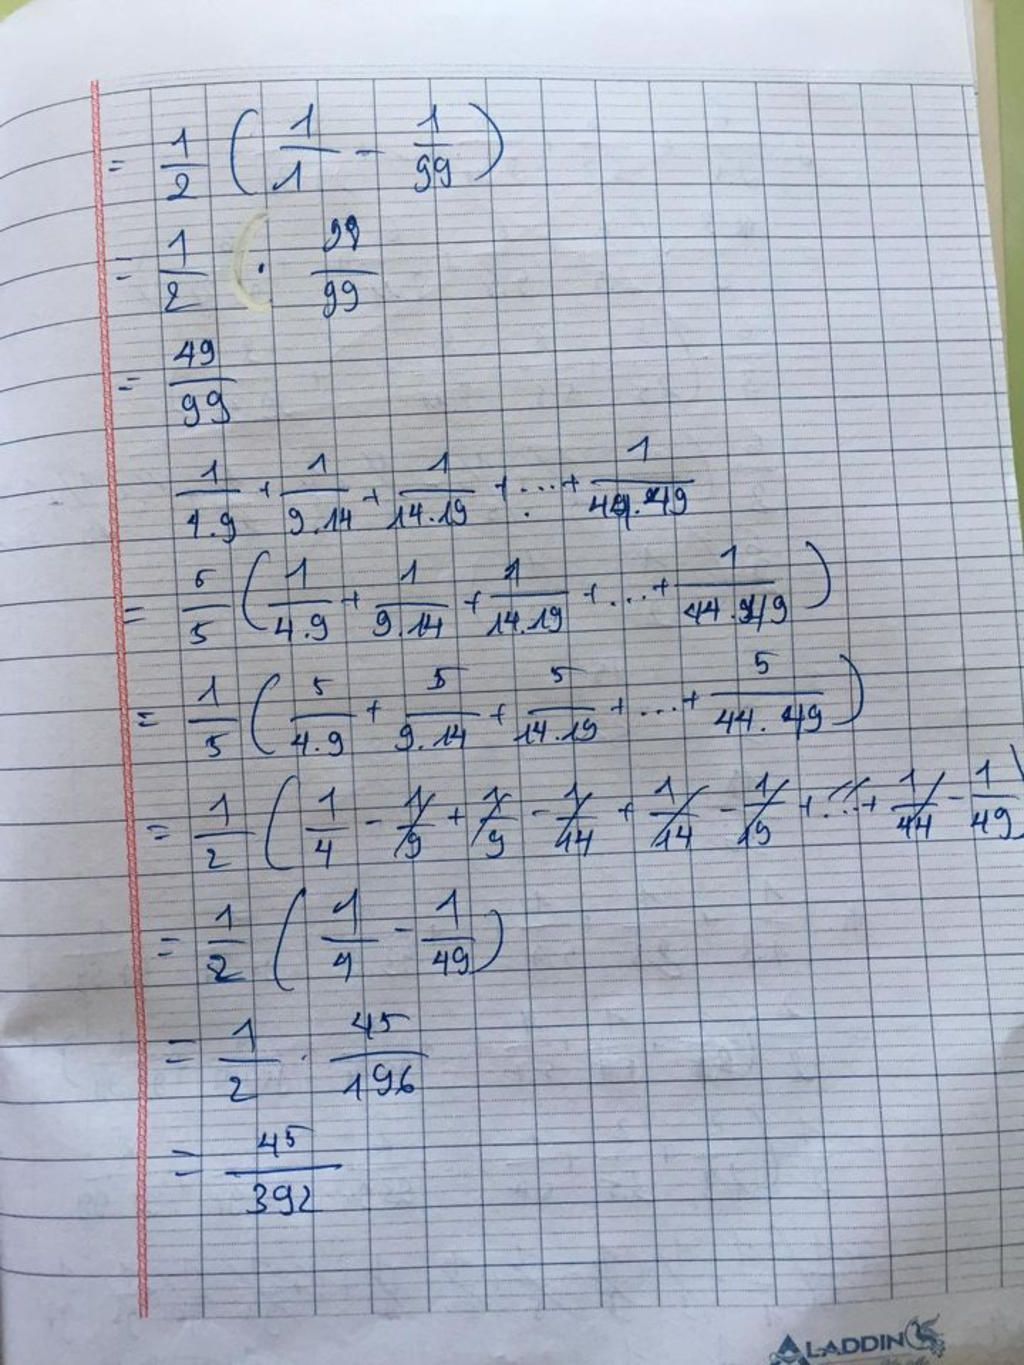 = 1/2 ( 1/1 - 1/99 )
= 1/2 . 98/99
= 49/99
1/4.9 + 1/9.14 + 1/14.19 + ... + 1/44.49
= 5/5 ( 1/4.9 + 1/9.14 + 1/14.19 + ... + 1/44.49 )
= 1/5 ( 5/4.9 + 5/9.14 + 5/14.19 + ... + 5/44.49 )
= 1/2 ( 1/4 - 1/9 + 1/9 - 1/14 + 1/14 - 1/19 + ... + 1/44 - 1/49 )
= 1/2 ( 1/4 - 1/49 )
= 1/2 . 45/196
= 45/392
ALADDIN